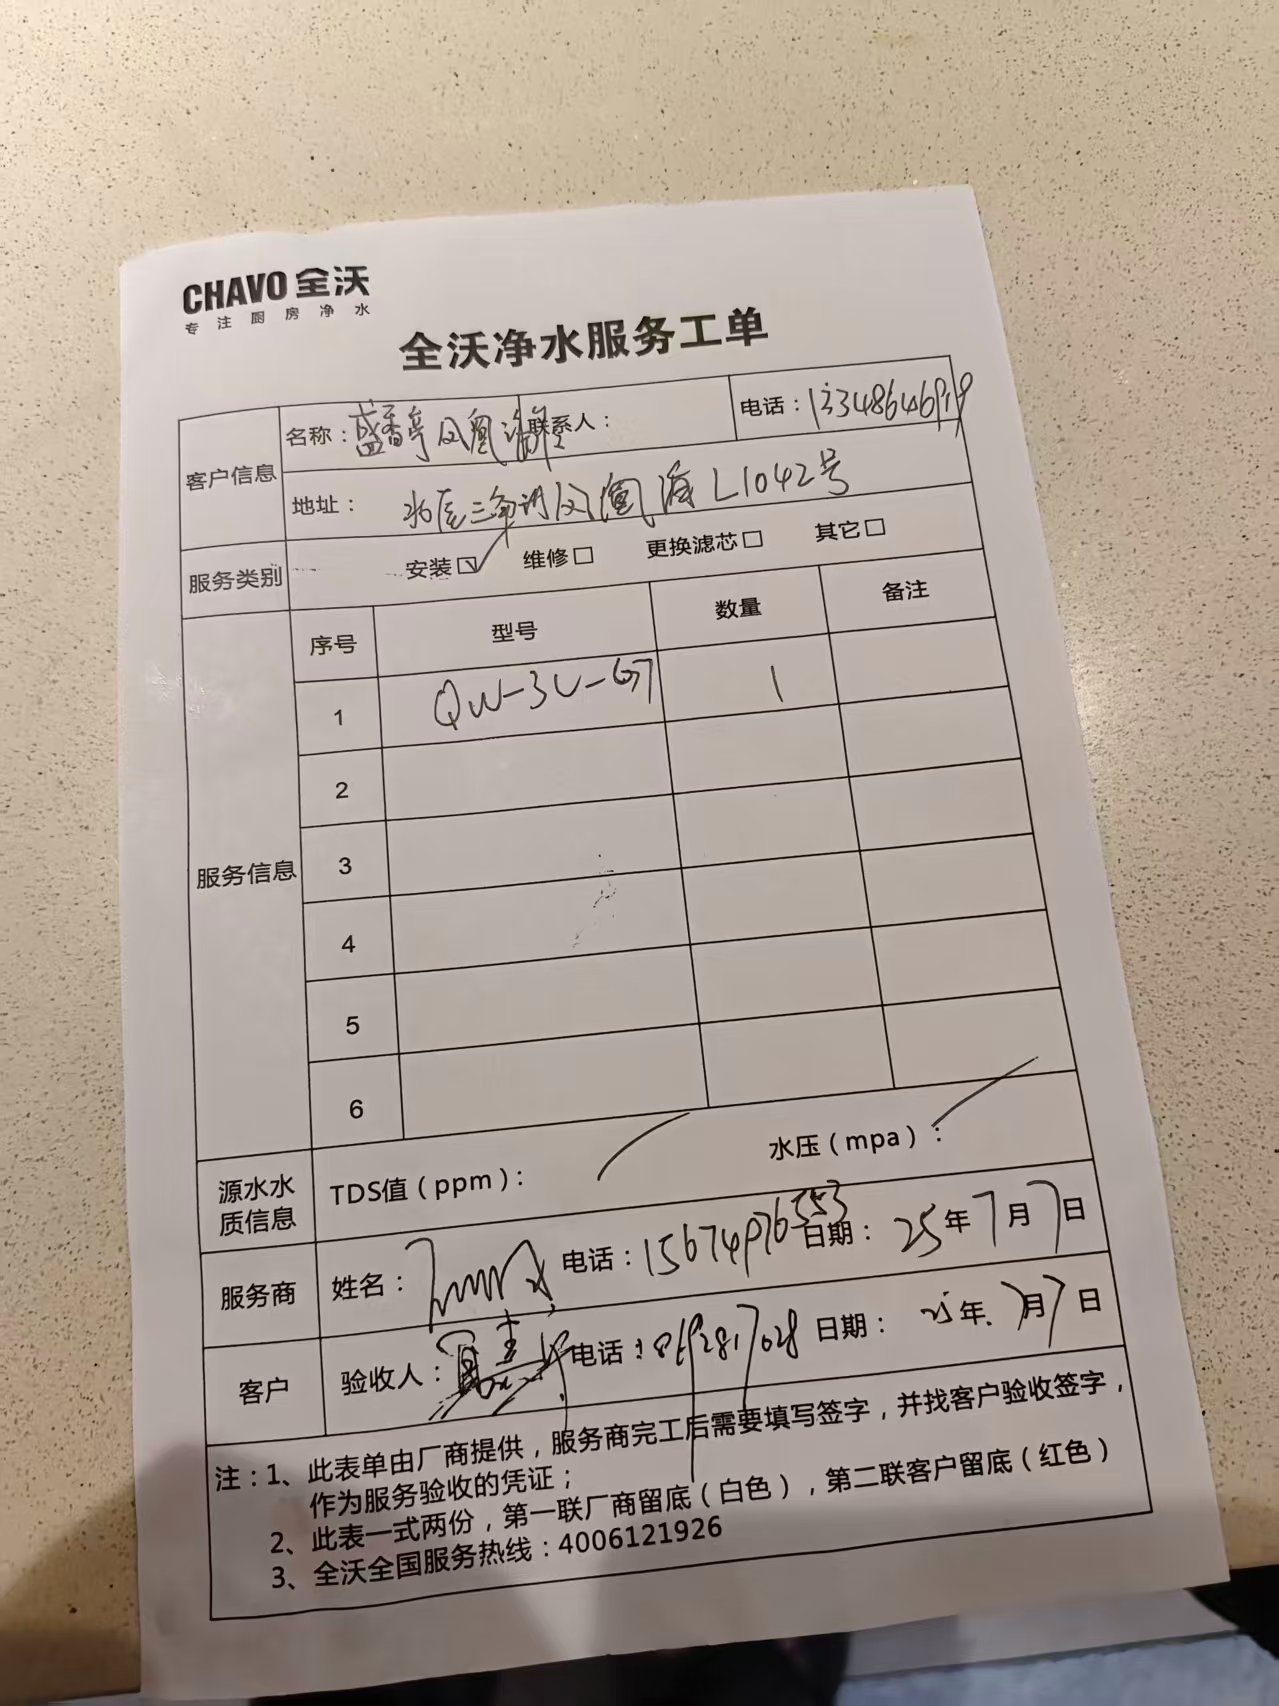 CHAVO 全沃
专注厨房净水
全沃净水服务工单
客户信息
名称：盛香亭凤凰海
联系人：
电话：13348646919
地址：凤凰海L1042号
服务类别
安装☑ 维修□ 更换滤芯□ 其它□
服务信息
序号 型号 数量 备注
1 QW-3U-G7 1
2
3
4
5
6
源水水质信息
TDS值（ppm）：
水压（mpa）：
服务商
姓名：
电话：15674976553
日期：25年7月7日
客户
验收人：
电话：18692817028
日期：25年7月7日
注：1、此表单由厂商提供，服务商完工后需要填写签字，并找客户验收签字，
作为服务验收的凭证；
2、此表一式两份，第一联厂商留底（白色），第二联客户留底（红色）
3、全沃全国服务热线：4006121926